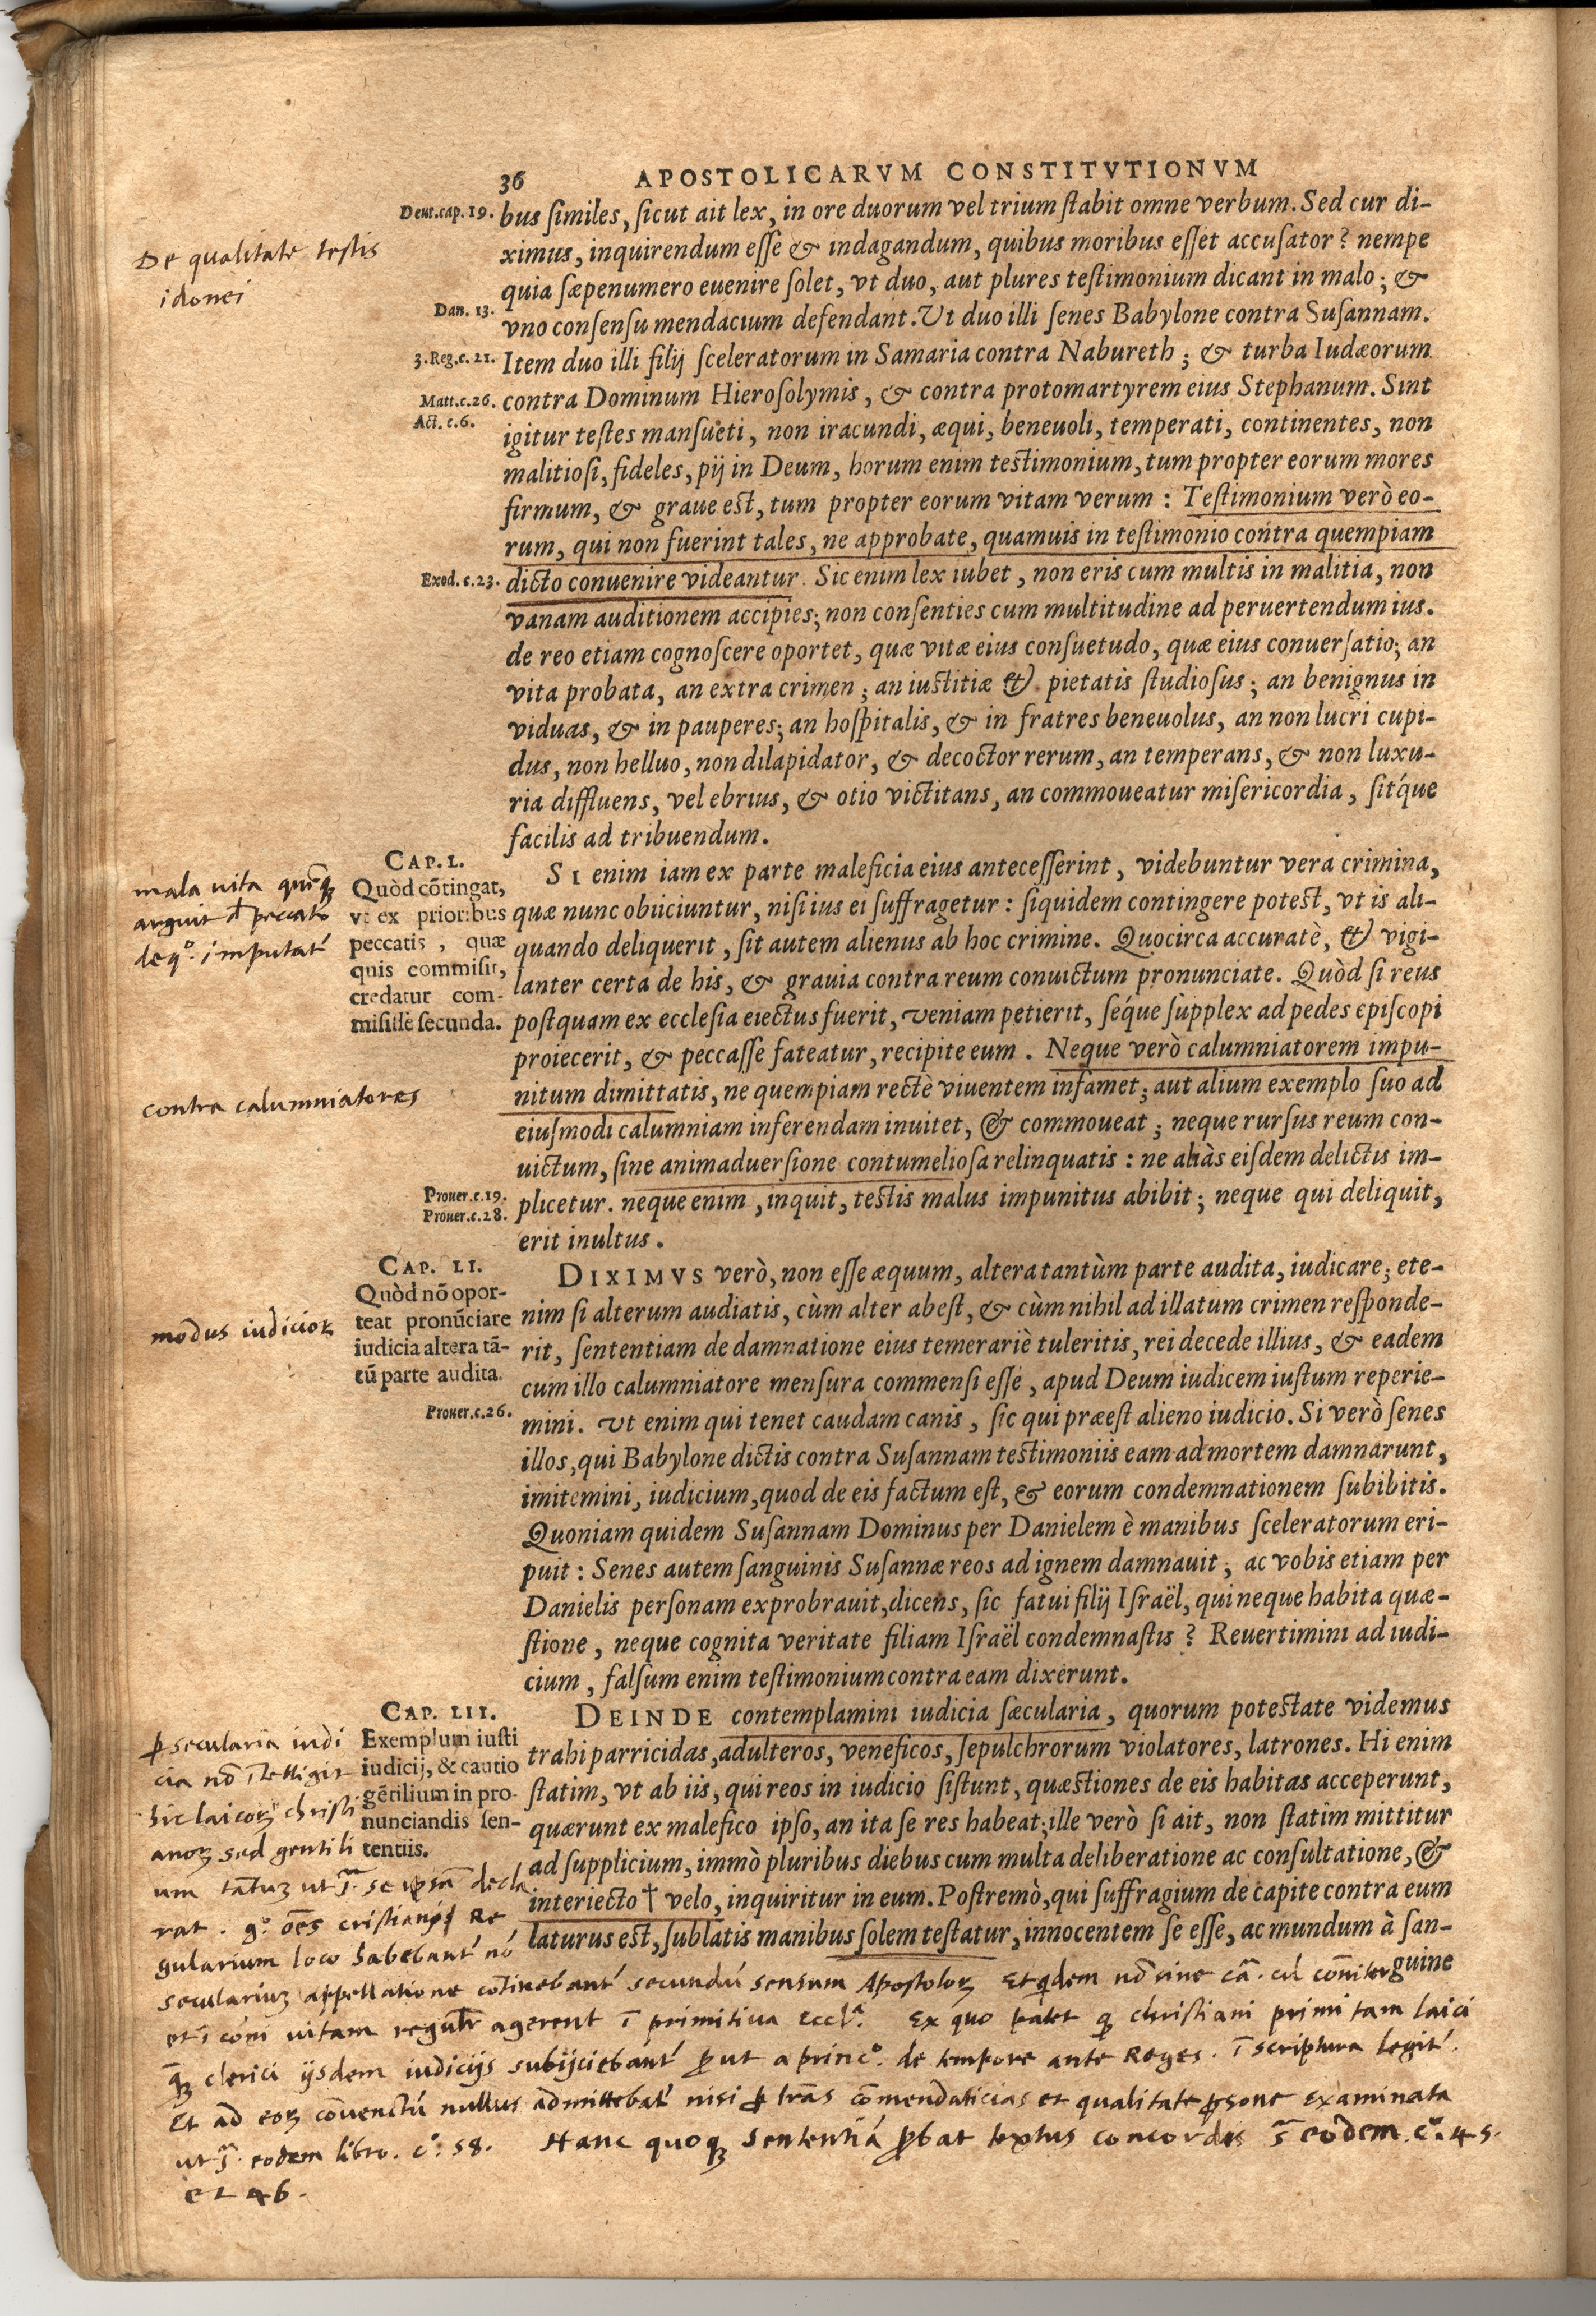 36 APOSTOLICARVM CONSTITVTIONVM
Deut.cap.19.
bus ſimiles, ſicut ait lex, in ore duorum vel trium ſtabit omne verbum. Sed cur di-
De qualitate testis
idonei
ximus, inquirendum eſſe & indagandum, quibus moribus eſſet accuſator? nempe
quia ſæpenumero euenire ſolet, vt duo, aut plures teſtimonium dicant in malo; &
Dan. 13.
vno conſenſu mendacium defendant. Vt duo illi ſenes Babylone contra Suſannam.
3.Reg.c.21.
Item duo illi filij ſceleratorum in Samaria contra Nabureth; & turba Iudæorum
Matt.c.26.
contra Dominum Hieroſolymis, & contra protomartyrem eius Stephanum. Sint
Act. c.6.
igitur teſtes manſueti, non iracundi, æqui, beneuoli, temperati, continentes, non
malitioſi, fideles, pij in Deum, horum enim teſtimonium, tum propter eorum mores
firmum, & graue eſt, tum propter eorum vitam verum: Teſtimonium verò eo-
rum, qui non fuerint tales, ne approbate, quamuis in teſtimonio contra quempiam
Exod. c.23.
dicto conuenire videantur. Sic enim lex iubet, non eris cum multis in malitia, non
vanam auditionem accipies; non conſenties cum multitudine ad peruertendum ius.
de reo etiam cognoſcere oportet, quæ vitæ eius conſuetudo, quæ eius conuerſatio; an
vita probata, an extra crimen; an iuſtitiæ & pietatis ſtudioſus; an benignus in
viduas, & in pauperes; an hoſpitalis, & in fratres beneuolus, an non lucri cupi-
dus, non helluo, non dilapidator, & decoctor rerum, an temperans, & non luxu-
ria diffluens, vel ebrius, & otio victitans, an commoueatur miſericordia, ſitq́ue
facilis ad tribuendum.
CAP. L.
Quòd cõtingat,
vt ex prioribus
peccatis, quæ
quis commiſit,
credatur com-
miſiſſe ſecunda.
mala uita
arguit peccato
imputat
SI enim iam ex parte maleficia eius anteceſſerint, videbuntur vera crimina,
quæ nunc obiiciuntur, niſi ius ei ſuffragetur: ſiquidem contingere poteſt, vt is ali-
quando deliquerit, ſit autem alienus ab hoc crimine. Quocirca accuratè, & vigi-
lanter certa de his, & grauia contra reum conuictum pronunciate. Quòd ſi reus
poſtquam ex eccleſia eiectus fuerit, veniam petierit, ſéque ſupplex ad pedes epiſcopi
proiecerit, & peccaſſe fateatur, recipite eum. Neque verò calumniatorem impu-
contra calumniatores
nitum dimittatis, ne quempiam rectè viuentem infamet; aut alium exemplo ſuo ad
eiuſmodi calumniam inferendam inuitet, & commoueat; neque rurſus reum con-
uictum, ſine animaduerſione contumelioſa relinquatis: ne aliàs eiſdem delictis im-
Prouer.c.19.
Prouer.c.28.
plicetur. neque enim, inquit, teſtis malus impunitus abibit; neque qui deliquit,
erit inultus.
CAP. LI.
Quòd nõ opor-
teat pronũciare
iudicia altera tã-
tũ parte audita.
modus iudicioꝝ
DIXIMVS verò, non eſſe æquum, altera tantùm parte audita, iudicare; ete-
nim ſi alterum audiatis, cùm alter abeſt, & cùm nihil ad illatum crimen reſponde-
rit, ſententiam de damnatione eius temerariè tuleritis, rei de cede illius, & eadem
cum illo calumniatore menſura commenſi eſſe, apud Deum iudicem iuſtum reperie-
Prouer.c.26.
mini. vt enim qui tenet caudam canis, ſic qui præeſt alieno iudicio. Si verò ſenes
illos, qui Babylone dictis contra Suſannam teſtimoniis eam ad mortem damnarunt,
imitemini, iudicium, quod de eis factum eſt, & eorum condemnationem ſubibitis.
Quoniam quidem Suſannam Dominus per Danielem è manibus ſceleratorum eri-
puit: Senes autem ſanguinis Suſannæ reos ad ignem damnauit; ac vobis etiam per
Danielis perſonam exprobrauit, dicens, ſic fatui filij Iſraël, qui neque habita quæ-
ſtione, neque cognita veritate filiam Iſraël condemnaſtis? Reuertimini ad iudi-
cium, falſum enim teſtimonium contra eam dixerunt.
CAP. LII.
Exemplum iuſti
iudicij, & cautio
gẽtilium in pro-
nunciandis ſen-
tentiis.
DEINDE contemplamini iudicia ſæcularia, quorum poteſtate videmus
trahi parricidas, adulteros, veneficos, ſepulchrorum violatores, latrones. Hi enim
ſtatim, vt ab iis, qui reos in iudicio ſiſtunt, quæſtiones de eis habitas acceperunt,
quærunt ex malefico ipſo, an ita ſe res habeat; ille verò ſi ait, non ſtatim mittitur
ad ſupplicium, immò pluribus diebus cum multa deliberatione ac conſultatione, &
interiecto † velo, inquiritur in eum. Poſtremò, qui ſuffragium de capite contra eum
laturus eſt, ſublatis manibus ſolem teſtatur, innocentem ſe eſſe, ac mundum à ſan-
guine
ꝑ secularia iudi
cia nō ītelligit
hic laicoꝝ christi
anoꝝ sed gentili
um tantuꝫ ut se ipsā decla
rat. gͦ. oēs cristiani Re
gularium loco habebant́ nō
seculariuꝫ appellatione cōtinebant́ secundū sensum Apostoloꝝ Et qdem nō sine cā. cū cōniter
et ī cōni uitam regulr̄ agerent ī primitiua Eccla. Ex quo patet ꝙ christiani primi tam laici
ꝙ̃ clerici ijsdem iudicijs subijciebant́ ꝓut a princͦ. de tempore ante Reges. ī scriptura legit́.
Et ad eoꝝ cōuenctū nullus admittebat́ nisi ꝑ lrās cōmendaticias et qualitate ꝑsone examinata
ut eodem libro. cͦ. 58. Hanc quoqꝫ sententiā ꝓbat textus concordās eodem. cͦ. 45.
et 46.